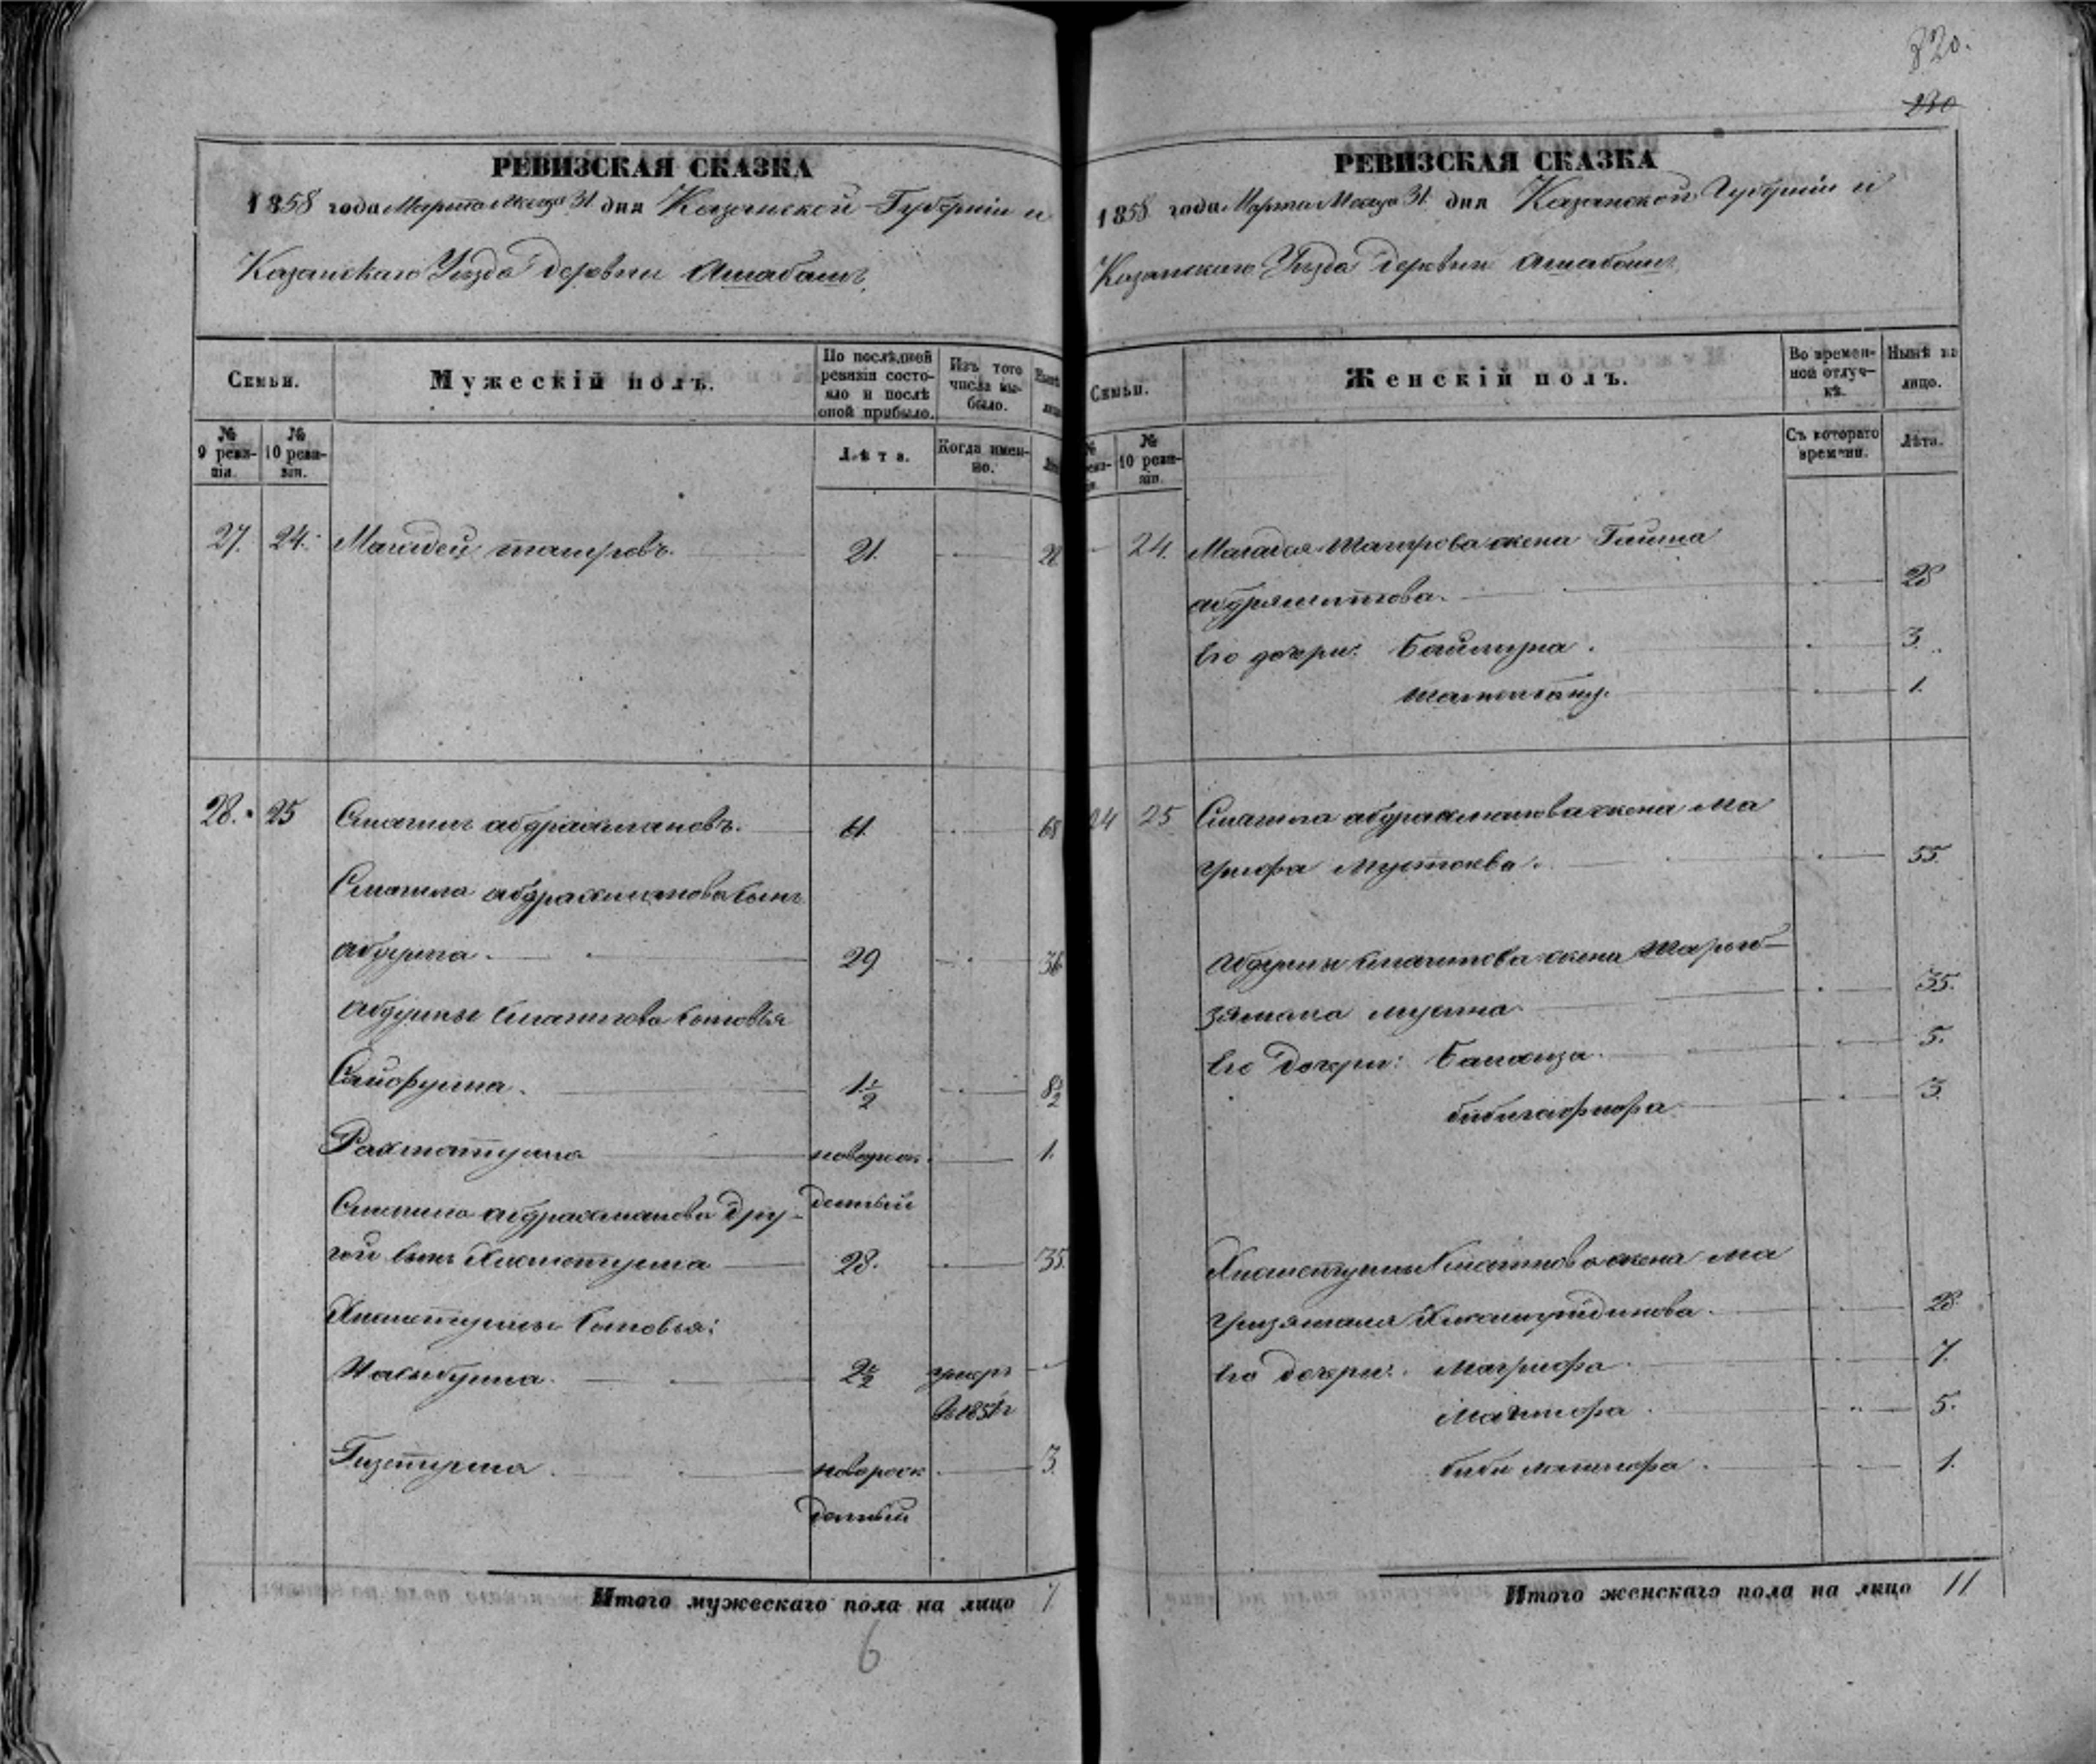 820.
230
РЕВИЗСКАЯ СКАЗКА
1858 года Марта Месяца 31. дня Казанской Губерніи и
Казанскаго Уѣзда деревни Ашабашъ,
Семьи.
Мужескій полъ.
По послѣдней ревизіи состояло и послѣ оной прибыло.
Изъ того числа выбыло.
№ 9 ревизіи.
№ 10 ревизіи.
Лѣта.
Когда именно.
27. 24. Магадей тагировъ. 21. 28
28. 25 Смагилъ абдрахмановъ. 61. 68
Смагила абдрахманова сынъ
абдулла. 29 36
абдуллы смагилова сыновья
Сайфулла. 1 1/2 8 1/2
Рахматулла новорож 1.
Смагила абдрахманова дру- денный
гой сынъ Хисматулла 28. 35.
Хисматуллы сыновья:
2 1/2 умеръ
в 1851 г
Гизатулла новорож 3.
денный
Итого мужескаго пола на лицо 7
6
РЕВИЗСКАЯ СКАЗКА
1858 года Марта Месяца 31. дня Казанской Губерніи и
Казанскаго Уѣзда деревни Ашабашъ,
Семьи.
Женскій полъ.
Во временной отлучкѣ.
Нынѣ на лицо.
№ 10 ревизіи.
Съ котораго времени.
Лѣта.
24. Магадея Тагирова жена Гайша
абдряшитова. 28
Его дочери: 3.
1.
24 25 Смагила абдрахманова жена Ма
55.
Абдуллы смагилова жена Шарыб-
зямала мусина 35.
Его дочери: 5.
бибигафифа. 3.
Хисматуллы Смагилова жена Ма
28.
Его дочери: Магруфа. 7.
5.
биби 1.
Итого женскаго пола на лицо 11